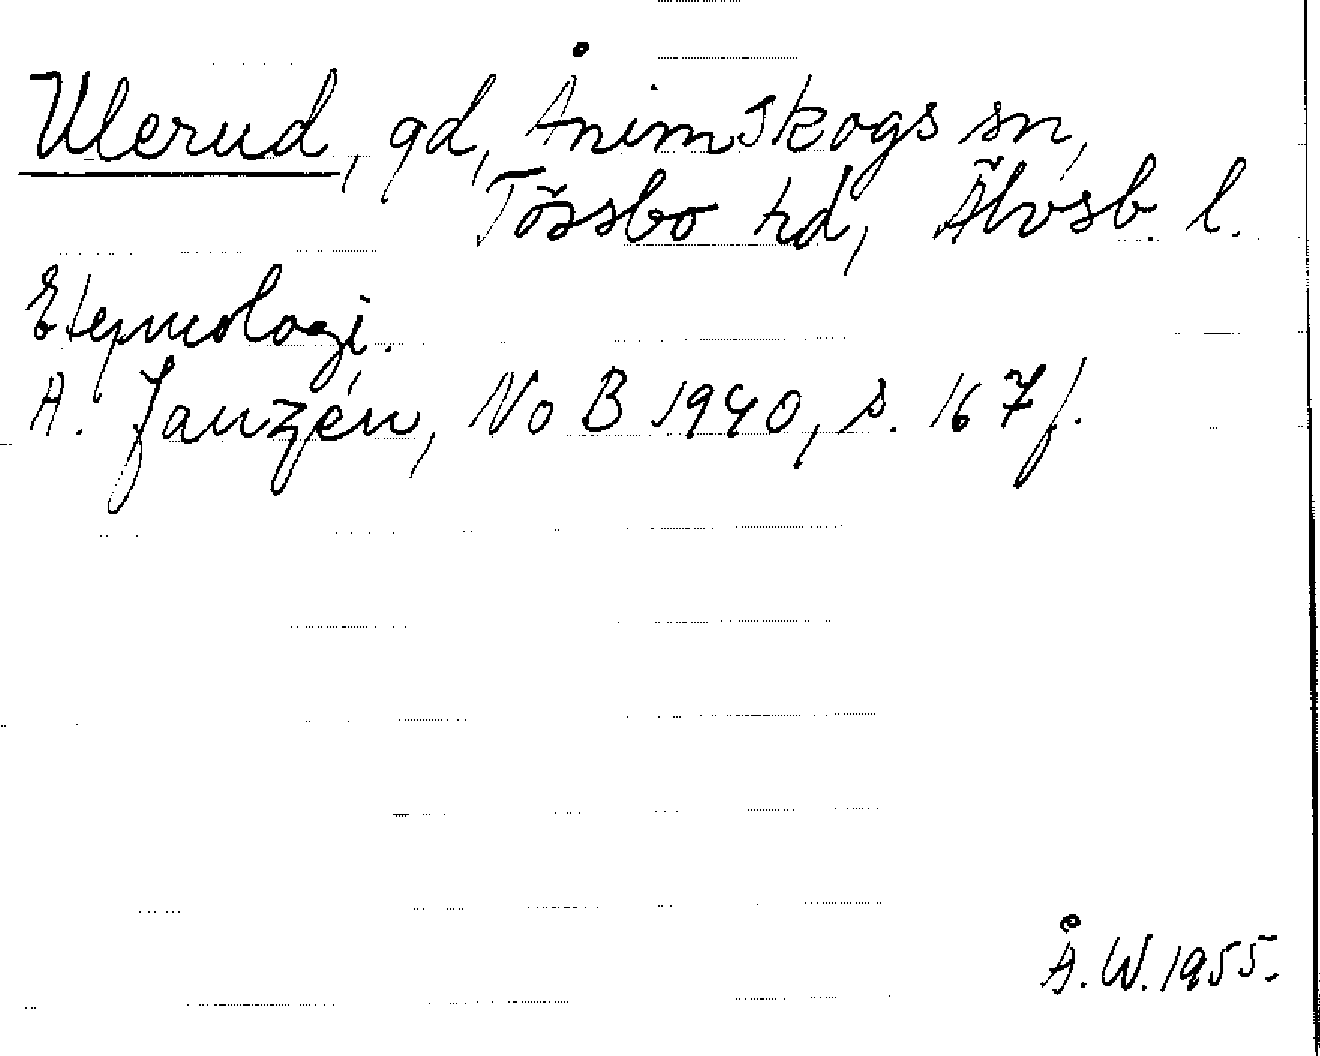 Ulerud, gd, Ånimskogs sn,
Tössbo hd, Älvsb. l.
Etymologi.
A. Janzén, NoB 1940, s. 167 f.
Å.W. 1955.